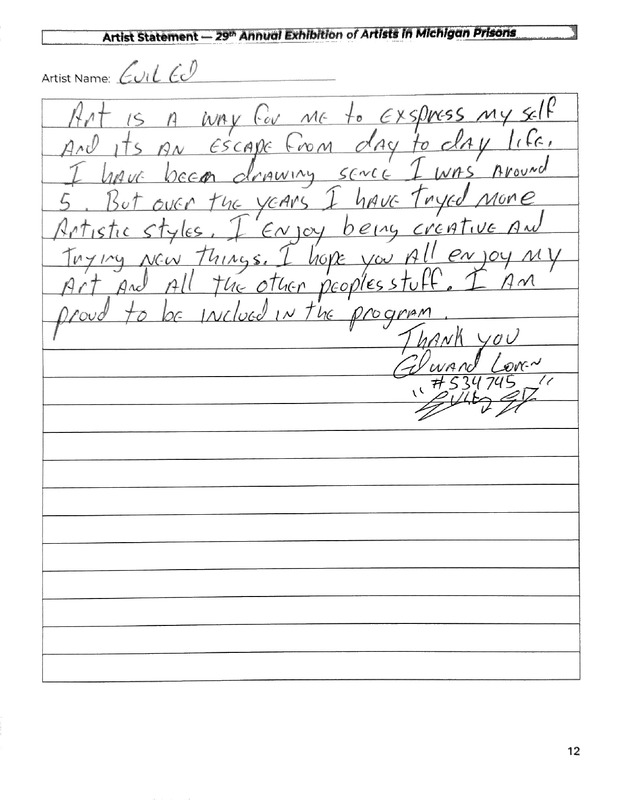 Artist Statement — 29th Annual Exhibition of Artists in Michigan Prisons
Artist Name: Evil Ed
Art is a way for me to exspress my self
And its an escape from day to day life.
I have been drawing sence I was around
5. But over the years I have tryed more
Artistic styles. I enjoy being creative and
trying new things. I hope you all enjoy my
Art and all the other peoples stuff. I am
proud to be inclued in the program.
Thank you
Edward Loven
#534745
12